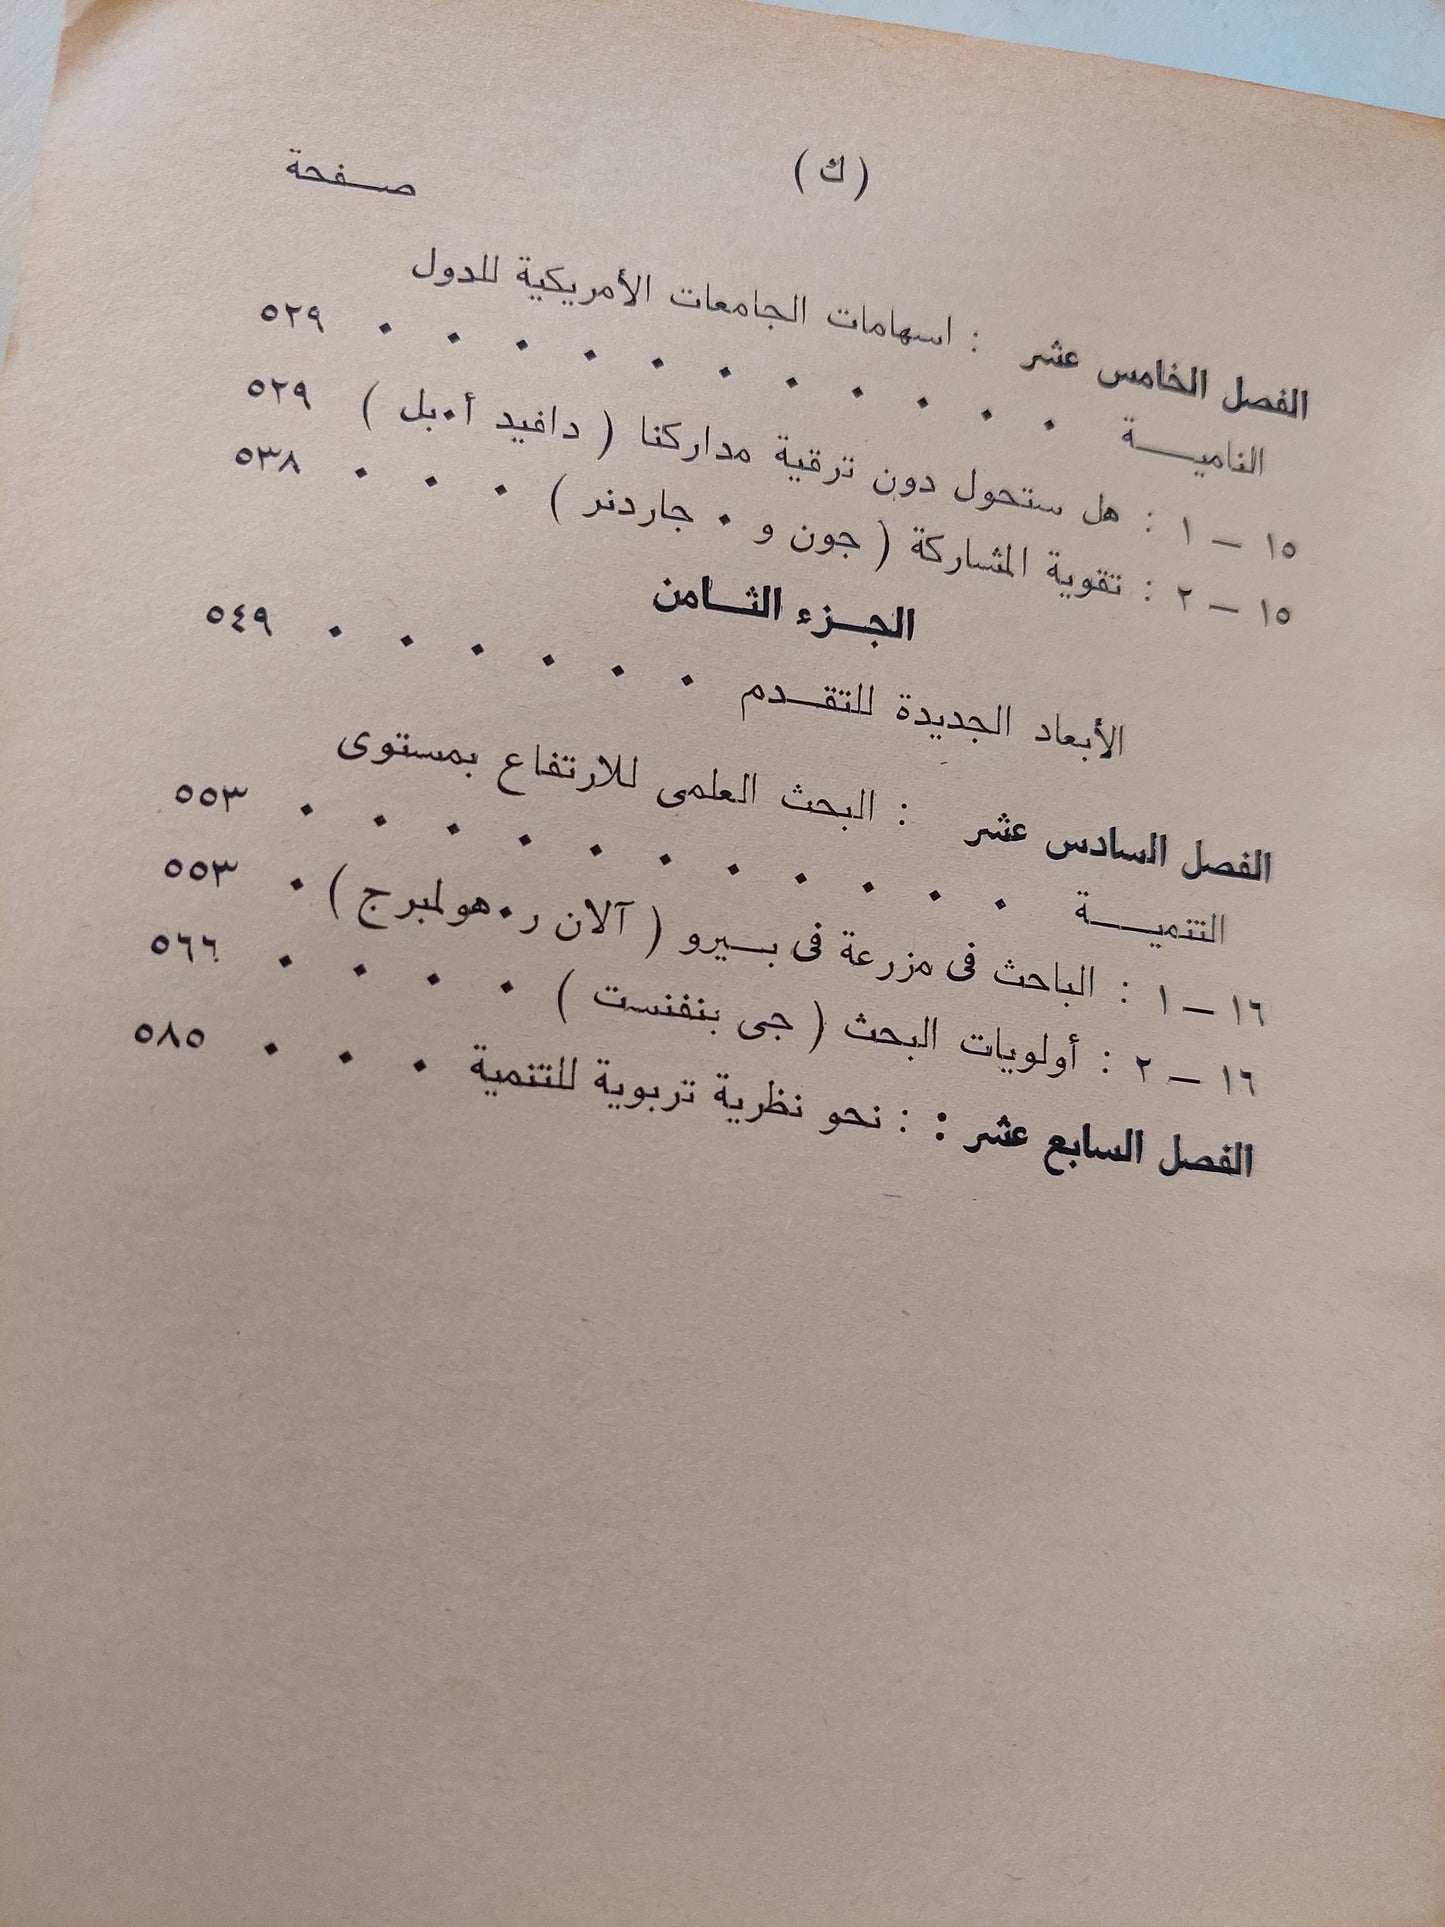 ( ك )
صفحة
الفصل الخامس عشر : اسهامات الجامعات الأمريكية للدول
النامية . . . . . . . . . . . ٥٢٩
١٥ — ١ : هل ستحول دون ترقية مداركنا ( دافيد أ. بل ) ٥٢٩
١٥ — ٢ : تقوية المشاركة ( جون و . جاردنر ) . . . ٥٣٨
الجزء الثامن
الأبعاد الجديدة للتقدم . . . . . . ٥٤٩
الفصل السادس عشر : البحث العلمى للارتفاع بمستوى
التنمية . . . . . . . . . . . ٥٥٣
١٦ — ١ : الباحث فى مزرعة فى بيرو ( آلان ر. هولمبرج ) . ٥٥٣
١٦ — ٢ : أولويات البحث ( جى بنفنست ) . . . . ٥٦٦
الفصل السابع عشر : : نحو نظرية تربوية للتنمية . . . ٥٨٥